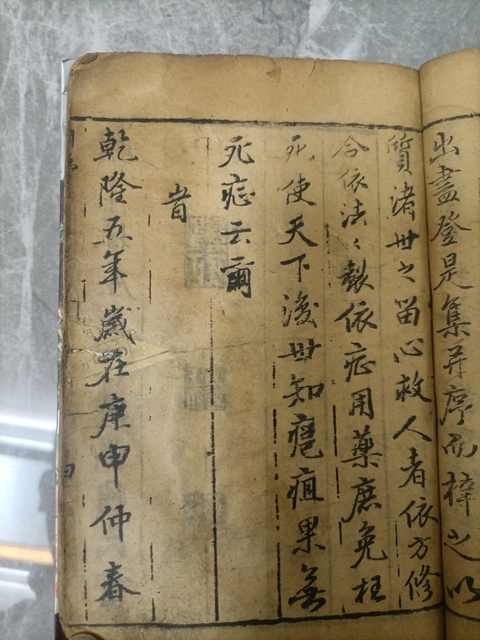 出盡登是集并序而梓之以
質諸世之留心救人者依方修
合依法〻製依症用藥庶免枉
死使天下後世知癰疽果無
死症云爾
旹
乾隆五年歲在庚申仲春